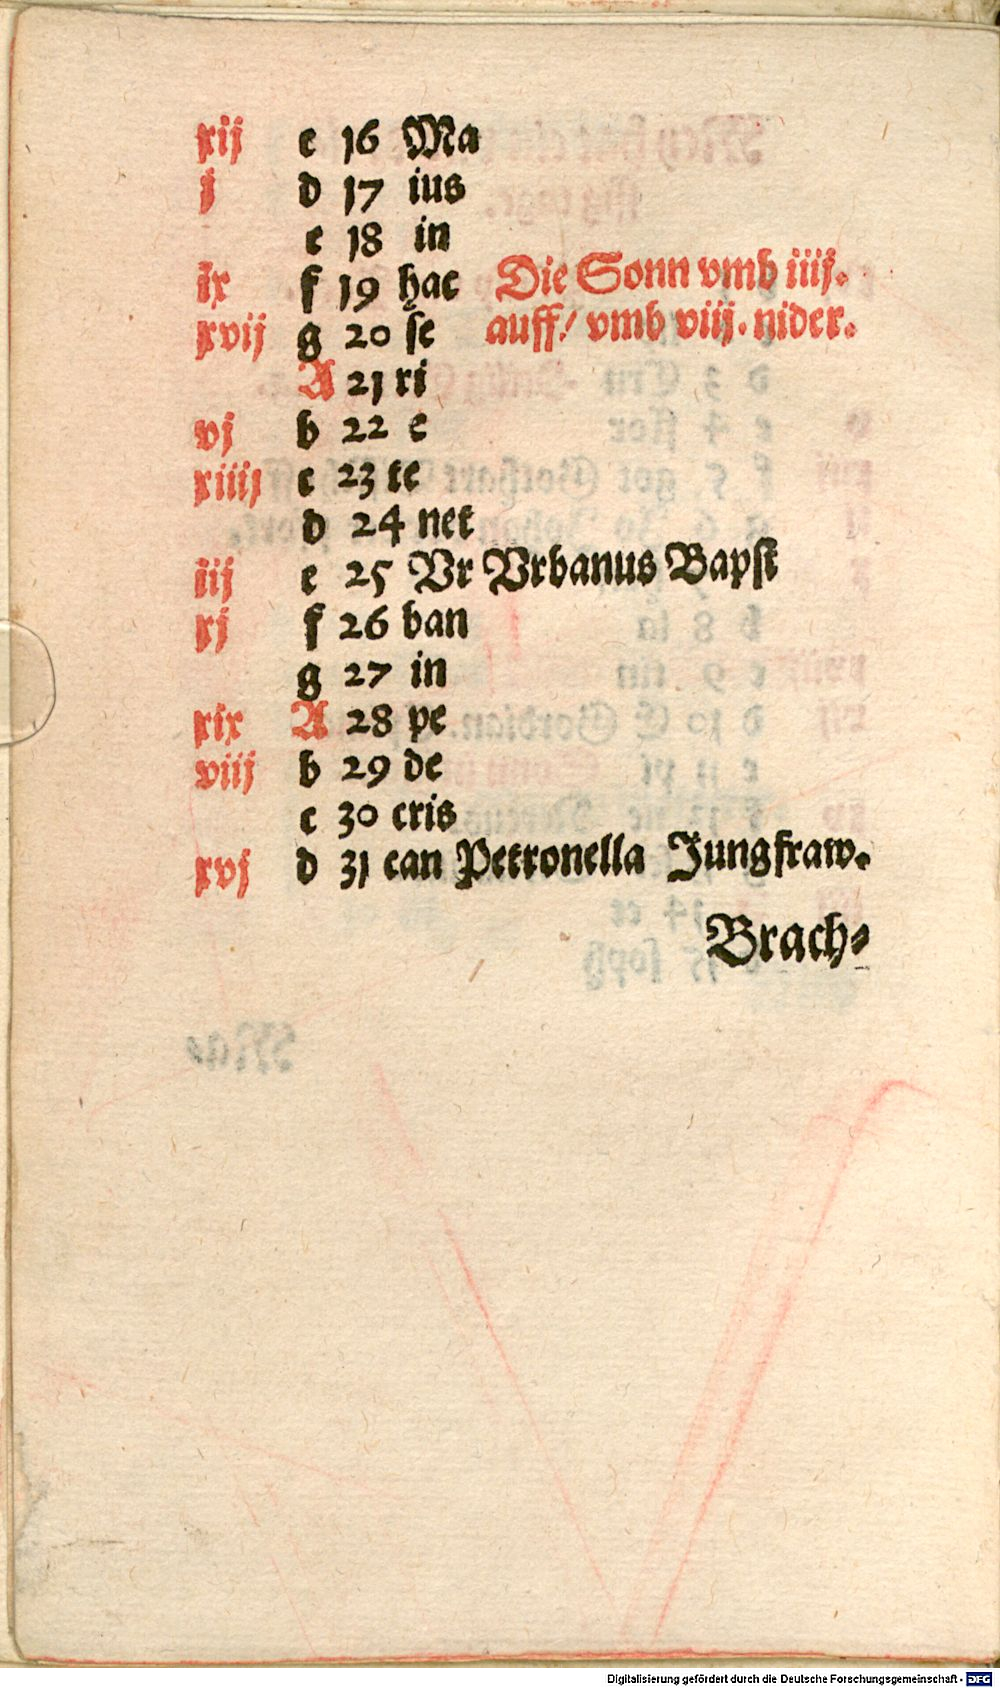 xij e 16 Ma
j d 17 ius
e 18 in
ix f 19 hac Die Sonn vmb iiij.
xvij g 20 se auff/ vmb viij. nider.
A 21 ri
vj b 22 e
xiiij c 23 te
d 24 net
iij e 25 Vr Vrbanus Bapst
xj f 26 ban
g 27 in
xix A 28 pe
viij b 29 de
c 30 cris
xvj d 31 can Petronella Jungfraw.
Brach⸗
Digitalisierung gefördert durch die Deutsche Forschungsgemeinschaft - DFG